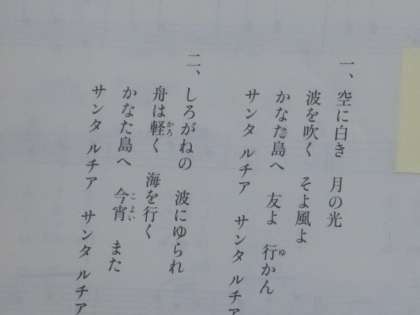 一、空に白き 月の光
波を吹く そよ風よ
かなた島へ 友よ 行かん
サンタ ルチア サンタ ルチア
二、しろがねの 波にゆられ
舟は軽く 海を行く
かなた島へ 今宵 また
サンタ ルチア サンタ ルチア